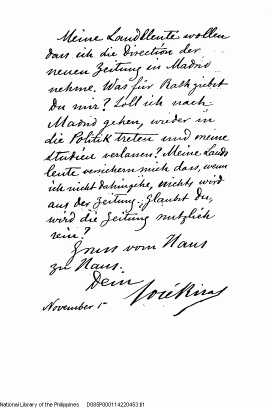 Meine Landsleute wollen
dass ich die Direction der
neuen Zeitung in Madrid
nehme. Was für Rath giebst
Du mir? Soll ich nach
Madrid gehen, wieder in
die Politik treten und meine
Studien verlassen? Meine Lands
leute versichern mich dass, wenn
ich nicht dahingehe, nichts wird
aus der Zeitung; Glaubst Du,
wird die Zeitung nutzlich
sein?
Gruss vom Haus
zu Haus.
Dein
José Rizal
November 5
National Library of the Philippines